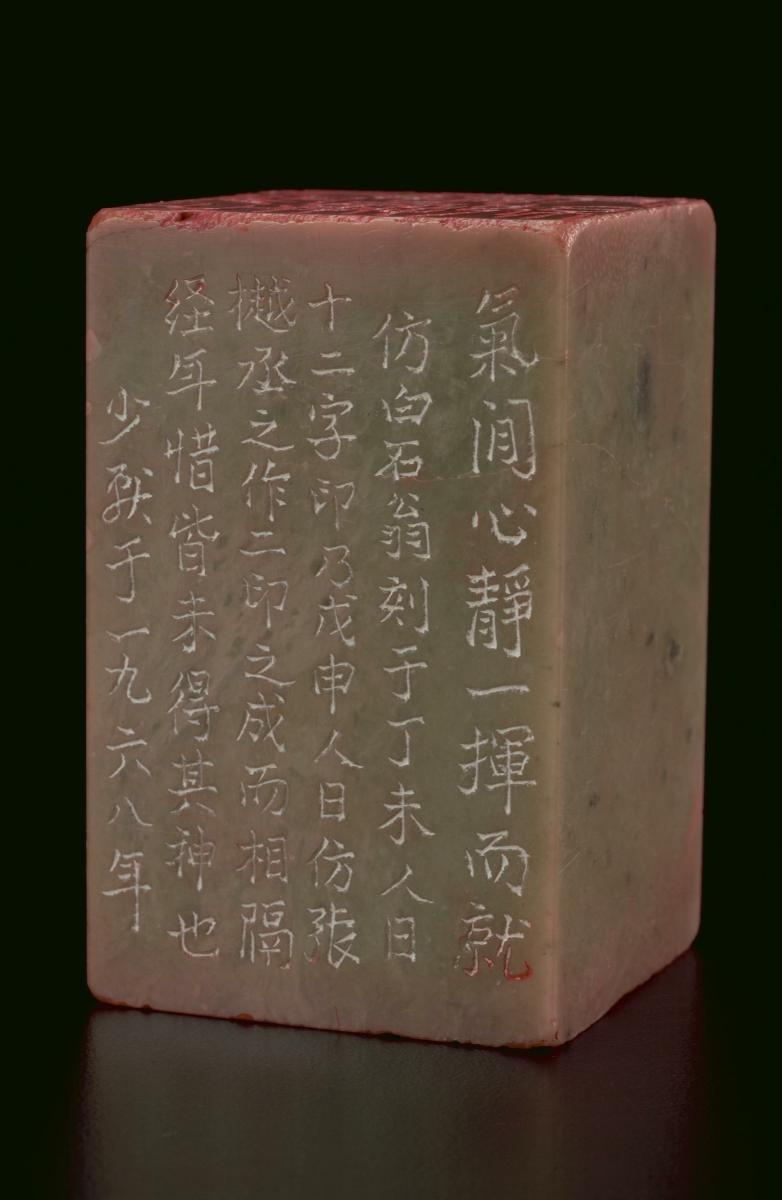 氣閒心靜一揮而就
仿白石翁刻于丁未人日
十二字印乃戊申人日仿張
樾丞之作二印之成而相隔
経年惜皆未得其神也
少于一九六八年